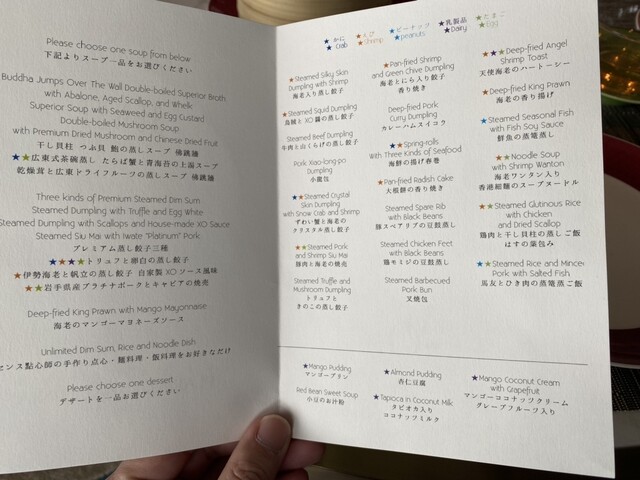 Please choose one soup from below
下記よりスープ一品をお選びください
Buddha Jumps Over The Wall Double-boiled Superior Broth
with Abalone, Aged Scallop, and Whelk
Superior Soup with Seaweed and Egg Custard
Double-boiled Mushroom Soup
with Premium Dried Mushroom and Chinese Dried Fruit
干し貝柱 つぶ貝 鮑の蒸しスープ 佛跳牆
★★広東式茶碗蒸し たらば蟹と青海苔の上湯スープ
乾燥茸と広東ドライフルーツの蒸しスープ 佛跳牆
Three kinds of Premium Steamed Dim Sum
Steamed Dumpling with Truffle and Egg White
Steamed Dumpling with Scallops and House-made XO Sauce
Steamed Siu Mai with Iwate "Platinum" Pork
プレミアム蒸し餃子三種
★★★★トリュフと卵白の蒸し餃子
★伊勢海老と帆立の蒸し餃子 自家製 XO ソース風味
★★岩手県産プラチナポークとキャビアの焼売
Deep-fried King Prawn with Mango Mayonnaise
海老のマンゴーマヨネーズソース
Unlimited Dim Sum, Rice and Noodle Dish
センス點心師の手作り点心・麺料理・飯料理をお好きなだけ
Please choose one dessert
デザートを一品お選びください
★かに ★えび ★ピーナッツ ★乳製品 ★たまご
★Crab ★Shrimp ★peanuts ★Dairy ★Egg
★Steamed Silky Skin
Dumpling with Shrimp
海老入り蒸し餃子
★Steamed Squid Dumpling
烏賊と XO 醤の蒸し餃子
Steamed Beef Dumpling
牛肉と山くらげの蒸し餃子
Pork Xiao-long-po
Dumpling
小龍包
★★Steamed Crystal
Skin Dumpling
with Snow Crab and Shrimp
ずわい蟹と海老の
クリスタル蒸し餃子
★★Steamed Pork
and Shrimp Siu Mai
豚肉と海老の焼売
Steamed Truffle and
Mushroom Dumpling
トリュフと
きのこの蒸し餃子
★Pan-fried Shrimp
and Green Chive Dumpling
海老とにら入り餃子
香り焼き
Deep-fried Pork
Curry Dumpling
カレーハムスイコク
★★Spring-rolls
With Three Kinds of Seafood
海鮮の揚げ春巻
★Pan-fried Radish Cake
大根餅の香り焼き
Steamed Spare Rib
with Black Beans
豚スペアリブの豆鼓蒸し
Steamed Chicken Feet
with Black Beans
鶏モミジの豆鼓蒸し
Steamed Barbecued
Pork Bun
叉焼包
★★★Deep-fried Angel
Shrimp Toast
天使海老のハートーシー
★Deep-fried King Prawn
海老の香り揚げ
★Steamed Seasonal Fish
with Fish Soy Sauce
鮮魚の蒸籠蒸し
★★Noodle Soup
with Shrimp Wanton
海老ワンタン入り
香港細麺のスープヌードル
★★Steamed Glutinous Rice
with Chicken
and Dried Scallop
鶏肉と干し貝柱の蒸しご飯
はすの葉包み
★★Steamed Rice and Minced
Pork with Salted Fish
馬友とひき肉の蒸籠蒸ご飯
★Mango Pudding
マンゴープリン
Red Bean Sweet Soup
小豆のお汁粉
★Almond Pudding
杏仁豆腐
★Tapioca in Coconut Milk
タピオカ入り
ココナッツミルク
★Mango Coconut Cream
with Grapefruit
マンゴーココナッツクリーム
グレープフルーツ入り